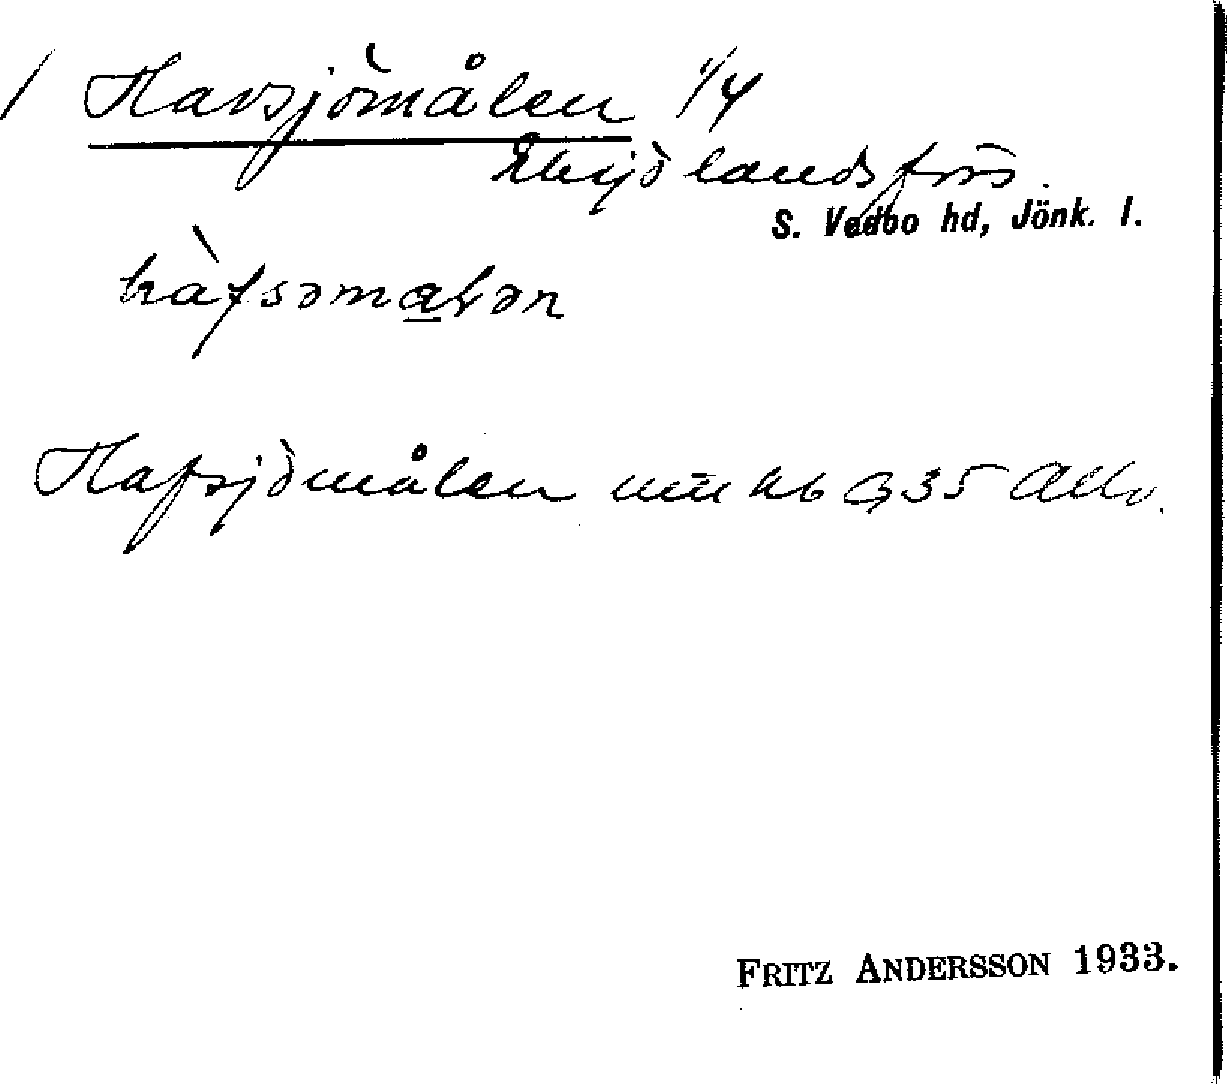 / Havsjömålen 1/4
Eksjö landsförs.
S. Vedbo hd, Jönk. l.
hàfsəmalən
Hafsjömålen
FRITZ ANDERSSON 1933.